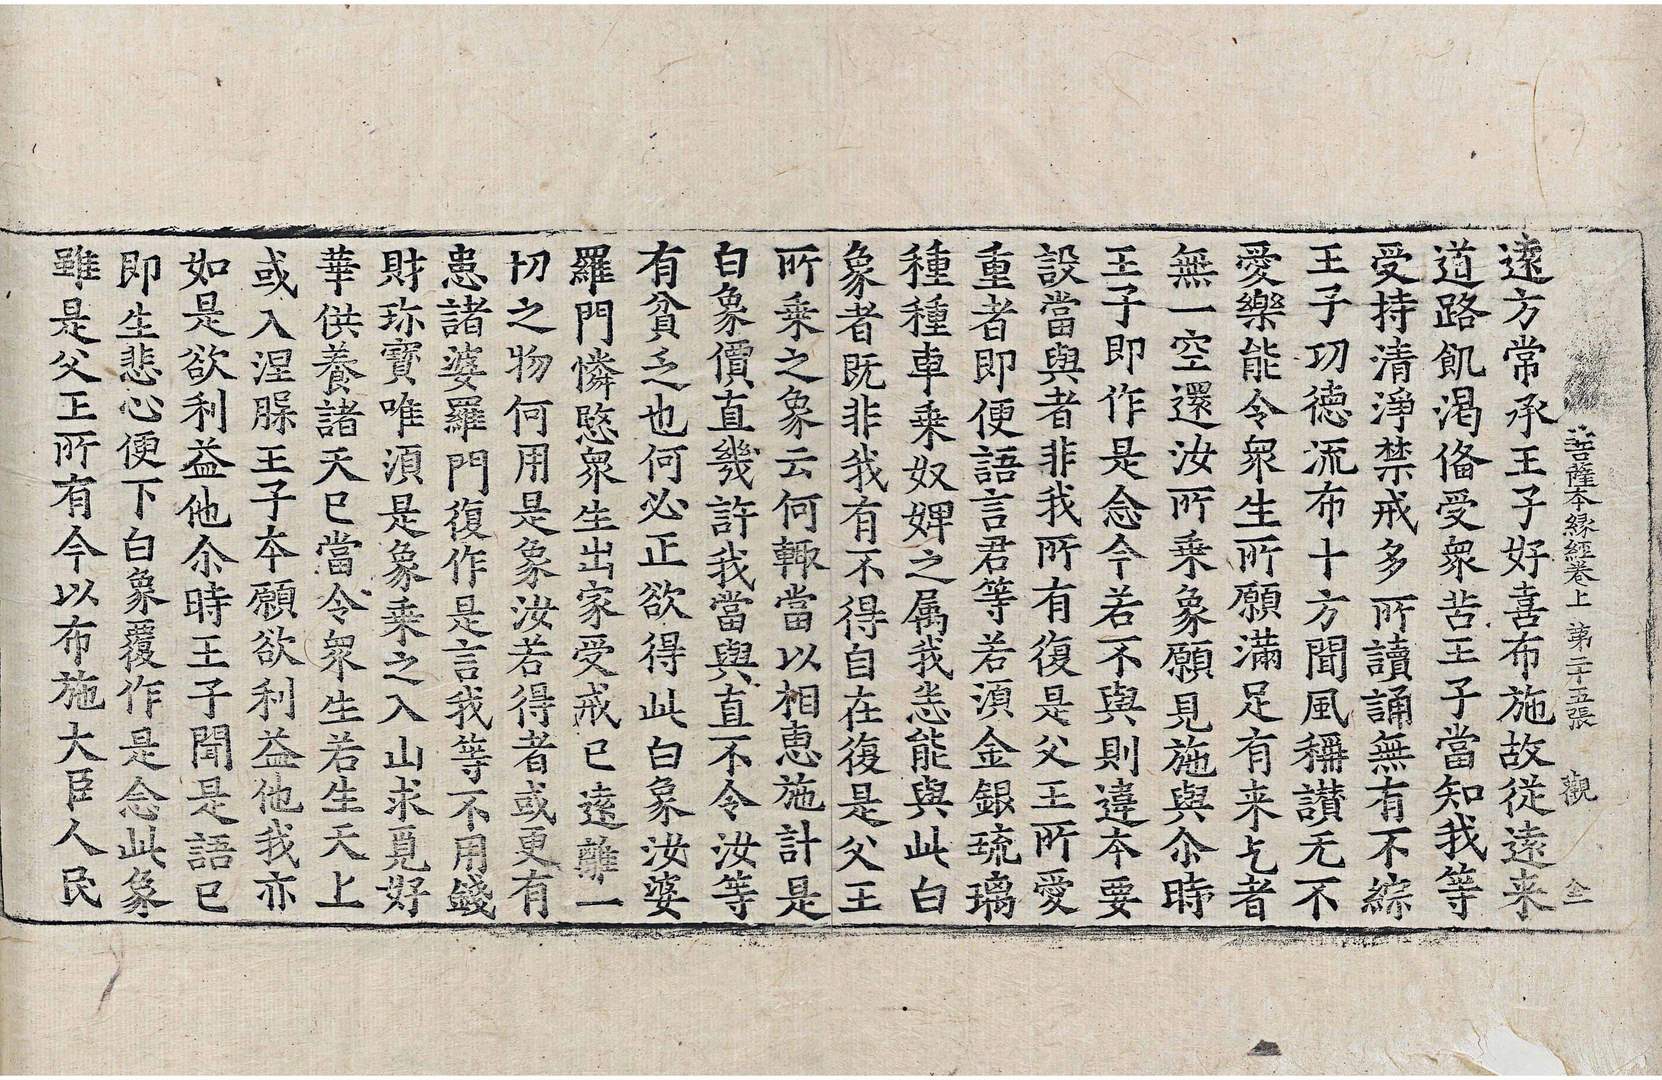 菩薩本緣經卷上 第二十五張 觀
遠方常承王子好喜布施故從遠来
道路飢渴俻受衆苦王子當知我等
受持清淨禁戒多所讀誦無有不綜
王子功德流布十方聞風稱讃无不
愛樂能令衆生所願滿足有来乞者
無一空還汝所乗象願見施與尒時
王子即作是念今若不與則違本要
設當與者非我所有復是父王所愛
重者即便語言君等若湏金銀琉璃
種種車乗奴婢之属我恙能與此白
象者既非我有不得自在復是父王
所乗之象云何輙當以相惠施計是
白象價直幾許我當與直不令汝等
有貧乏也何必正欲得此白象汝婆
羅門憐愍衆生出家受戒已遠離一
切之物何用是象汝若得者或更有
患諸婆羅門復作是言我等不用錢
財珎寳唯湏是象乗之入山求覓好
華供養諸天已當令衆生若生天上
或入涅槃王子本願欲利益他我亦
如是欲利益他尒時王子聞是語已
即生悲心便下白象覆作是念此象
雖是父王所有今以布施大臣人民